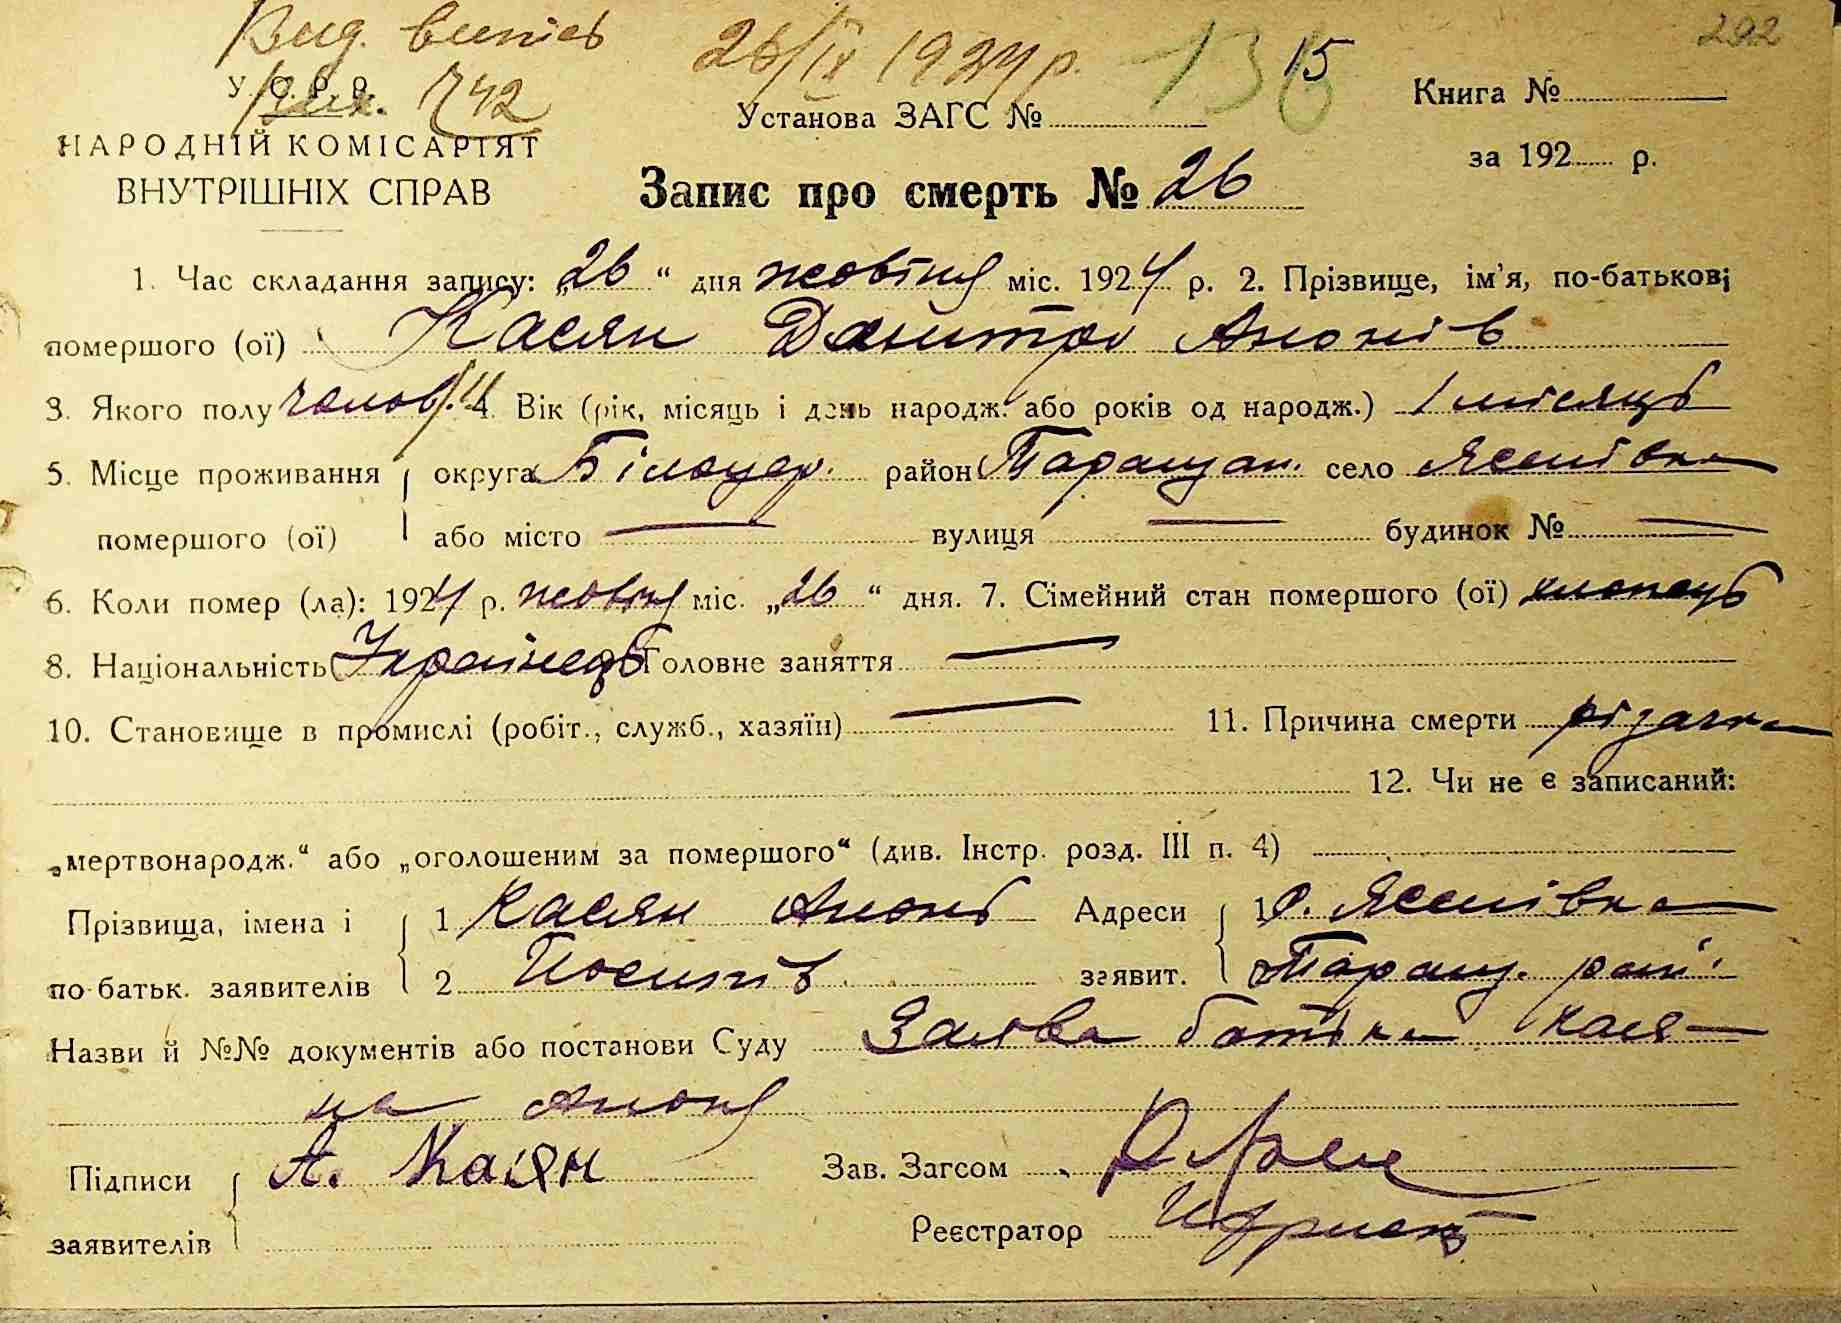 Вид. випис 26/IX 1924 р. 13 15 292
У. С. Р. Р. Книга №
742 Установа ЗАГС №
НАРОДНІЙ КОМІСАРІЯТ за 192 р.
ВНУТРІШНІХ СПРАВ Запис про смерть № 26
1. Час складання запису: „26“ дня жовтня міс. 1924 р. 2. Прізвище, ім'я, по-батькові
помершого (ої) Касян Дмитро Антонів
3. Якого полу чолов. 4. Вік (рік, місяць і день народж. або років од народж.) 1 місяць
5. Місце проживання округа Білоцер. район Таращан. село Ясенівка
помершого (ої) або місто — вулиця — будинок № —
6. Коли помер (ла): 1924 р. жовтня міс. „26“ дня. 7. Сімейний стан помершого (ої) хлопець
8. Національність Українець 9. Головне заняття —
10. Становище в промислі (робіт., служб., хазяїн) — 11. Причина смерти різачка
12. Чи не є записаний:
„мертвонародж.“ або „оголошеним за помершого“ (див. Інстр. розд. III п. 4)
Прізвища, імена і 1 Касян Антон Адреси 1 с. Ясенівка
по батьк. заявителів 2 Йосипів заявит. Таращ. рай.
Назви й №№ документів або постанови Суду Заява батька Кася-
на Антона
Підписи А. Касян Зав. Загсом
заявителів Реєстратор